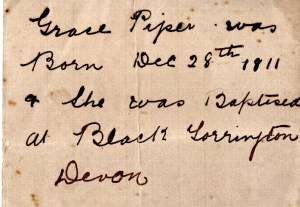 Grace Piper was
Born Dec 28th 1911
& She was Baptised
at Black Torrington
Devon